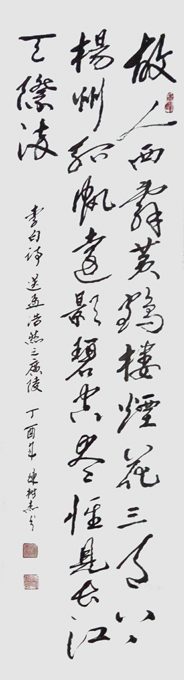 故人西辭黃鶴樓煙花三月下
楊州孤帆遠影碧空盡惟見長江
天際流
李白詩 送孟浩然之廣陵 丁酉年